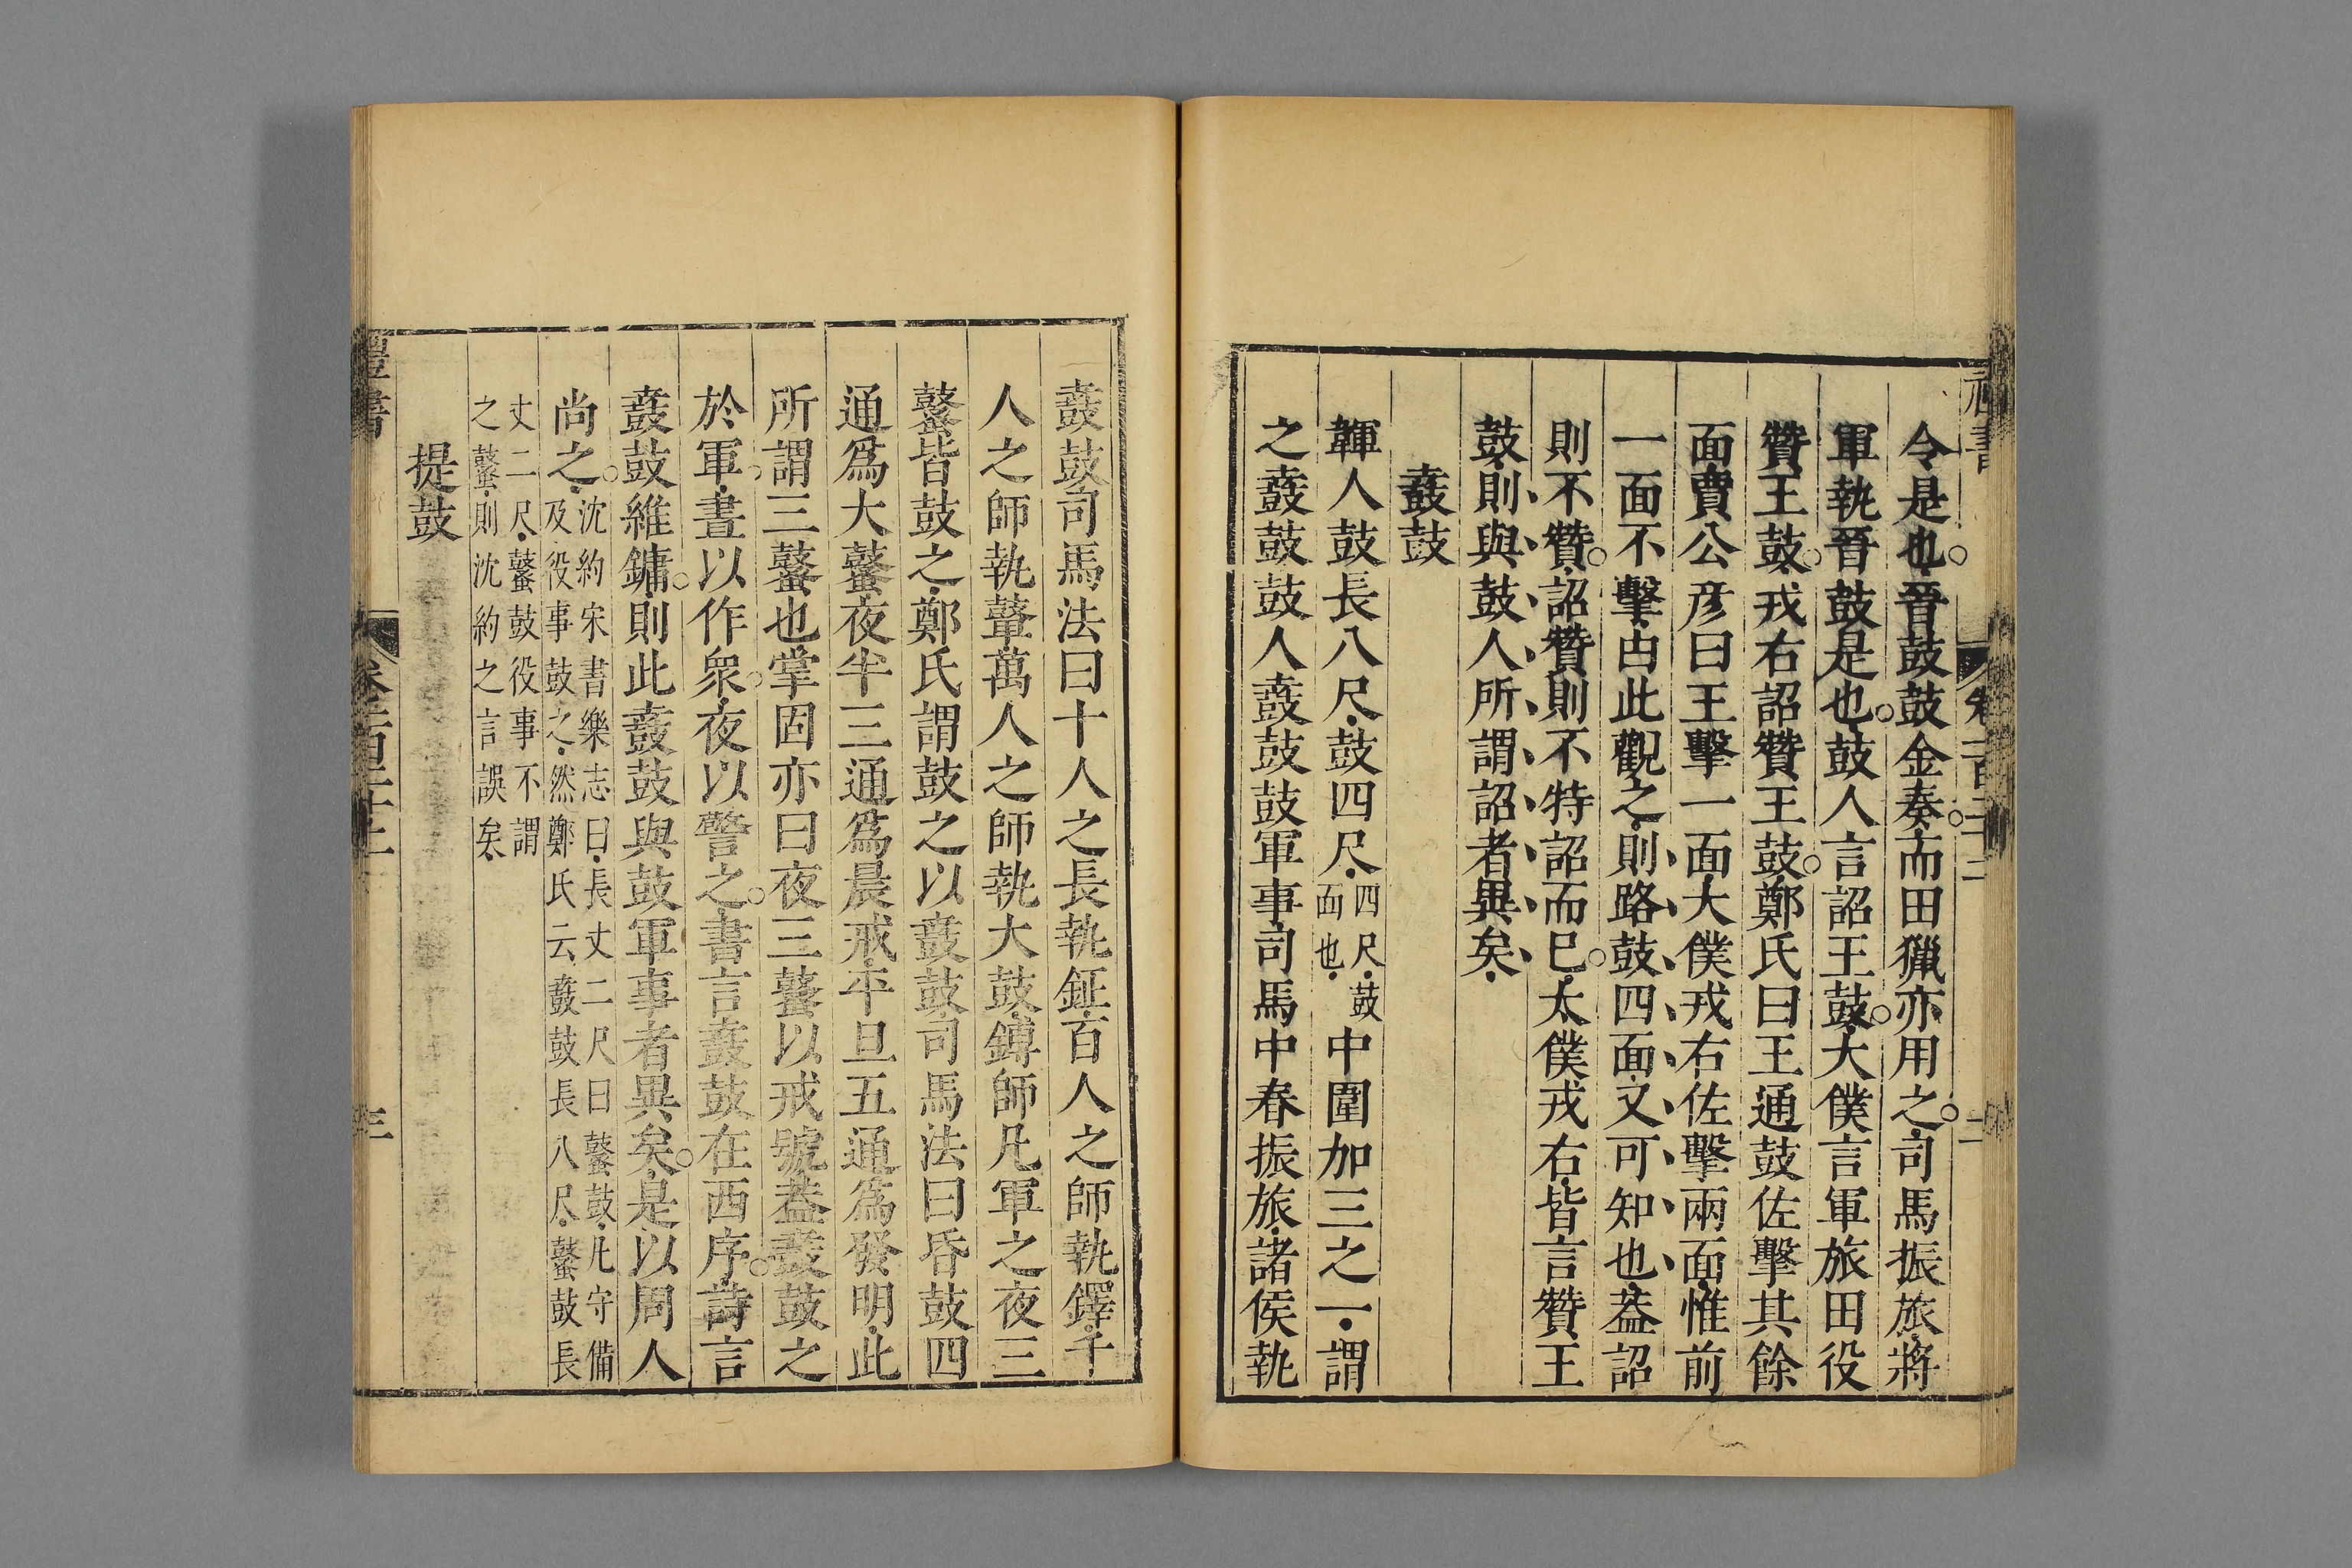 令是也晉鼓鼓金奏而田獵亦用之司馬振旅將
軍執晉鼓是也鼓人言詔王鼓大僕言軍旅田役
贊王鼓戎右詔贊王鼓鄭氏曰王通鼓佐擊其餘
面賈公彥曰王擊一面大僕戎右佐擊兩面惟前
一面不擊由此觀之則路鼓四面又可知也葢詔
則不贊詔贊則不特詔而巳太僕戎右皆言贊王
鼓則與鼓人所謂詔者異矣
鼖鼓
韗人鼓長八尺鼓四尺四尺鼓面也中圍加三之一謂
之鼖鼓鼓人鼖鼓鼓軍事司馬中春振旅諸侯執
鼖鼓司馬法曰十人之長執鉦百人之師執鐸千
人之師執鼙萬人之師執大鼓鎛師凡軍之夜三
鼜皆鼓之鄭氏謂鼓之以鼖鼓司馬法曰昏鼓四
通爲大鼜夜半三通爲晨戒平旦五通爲發明此
所謂三鼜也掌固亦曰夜三鼜以戒號葢鼖鼓之
於軍晝以作衆夜以警之書言鼖鼓在西序詩言
鼖鼓維鏞則此鼖鼓與鼓軍事者異矣是以周人
尚之沈約宋書樂志曰長丈二尺曰鼜鼓凡守備
及役事鼓之然鄭氏云鼖鼓長八尺鼜鼓長
丈二尺鼜鼓役事不謂
之鼜則沈約之言誤矣
提鼓
禮書
卷一百二十二
三